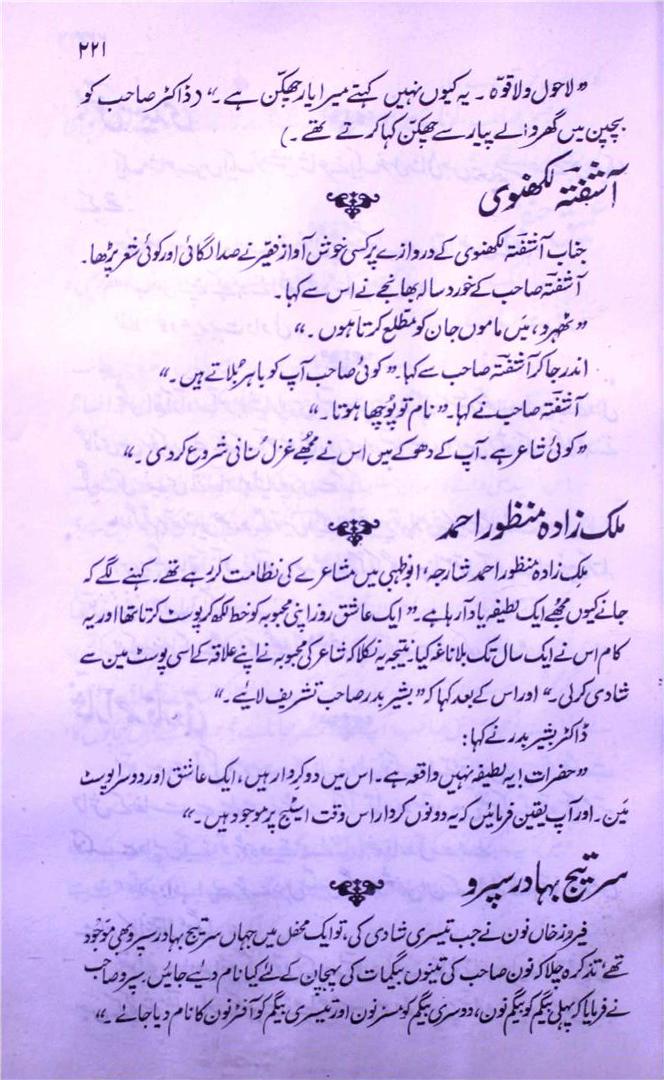 ۲۲۱
”لاحول ولا قوۃ۔ یہ کیوں نہیں کہتے میرا یار چھکّن ہے۔“ (ڈاکٹر صاحب کو
بچپن میں گھر والے پیار سے چھکن کہا کرتے تھے۔)
آشفتہؔ لکھنوی
جناب آشفتہؔ لکھنوی کے دروازے پر کسی خوش آواز فقیر نے صدا لگائی اور کوئی شعر پڑھا۔
آشفتہؔ صاحب کے خورد سالہ بھانجے نے اس سے کہا۔
”ٹھہرو، مَیں ماموں جان کو مطلع کرتا ہوں۔“
اندر جا کر آشفتہؔ صاحب سے کہا۔ ”کوئی صاحب آپ کو باہر بُلاتے ہیں۔“
آشفتہؔ صاحب نے کہا۔ ”نام تو پُوچھا ہوتا۔“
”کوئی شاعر ہے۔ آپ کے دھوکے میں اس نے مجھے غزل سُنانی شروع کر دی۔“
ملک زادہ منظور احمد
ملک زادہ منظور احمد شارجہ/ابوظہبی میں مشاعرے کی نظامت کر رہے تھے۔ کہنے لگے کہ
جانے کیوں مجھے ایک لطیفہ یاد آ رہا ہے۔ ”ایک عاشق روز اپنی محبوبہ کو خط لکھ کر پوسٹ کرتا تھا اور یہ
کام اس نے ایک سال تک بلا ناغہ کیا۔ نتیجہ یہ نکلا کہ شاعر کی محبوبہ نے اپنے علاقہ کے اسی پوسٹ مین سے
شادی کر لی۔“ اور اس کے بعد کہا کہ ”بشیر بدر صاحب تشریف لایئے۔“
ڈاکٹر بشیر بدر نے کہا:
”حضرات! یہ لطیفہ نہیں واقعہ ہے۔ اس میں دو کردار ہیں، ایک عاشق اور دوسرا پوسٹ
مَین۔ اور آپ یقین فرمائیں کہ یہ دونوں کردار اس وقت اسٹیج پر موجود ہیں۔“
سر تیج بہادر سپرو
فیروز خاں نون نے جب تیسری شادی کی، تو ایک محفل میں جہاں سر تیج بہادر سپرو بھی موجود
تھے، تذکرہ چلا کہ نون صاحب کی تینوں بیگمات کی پہچان کے لئے کیا نام دیے جائیں۔ سپرو صاحب
نے فرمایا کہ پہلی بیگم کو بیگم نون، دوسری بیگم کو مسز نون اور تیسری بیگم کو آفٹر نون کا نام دیا جائے۔“